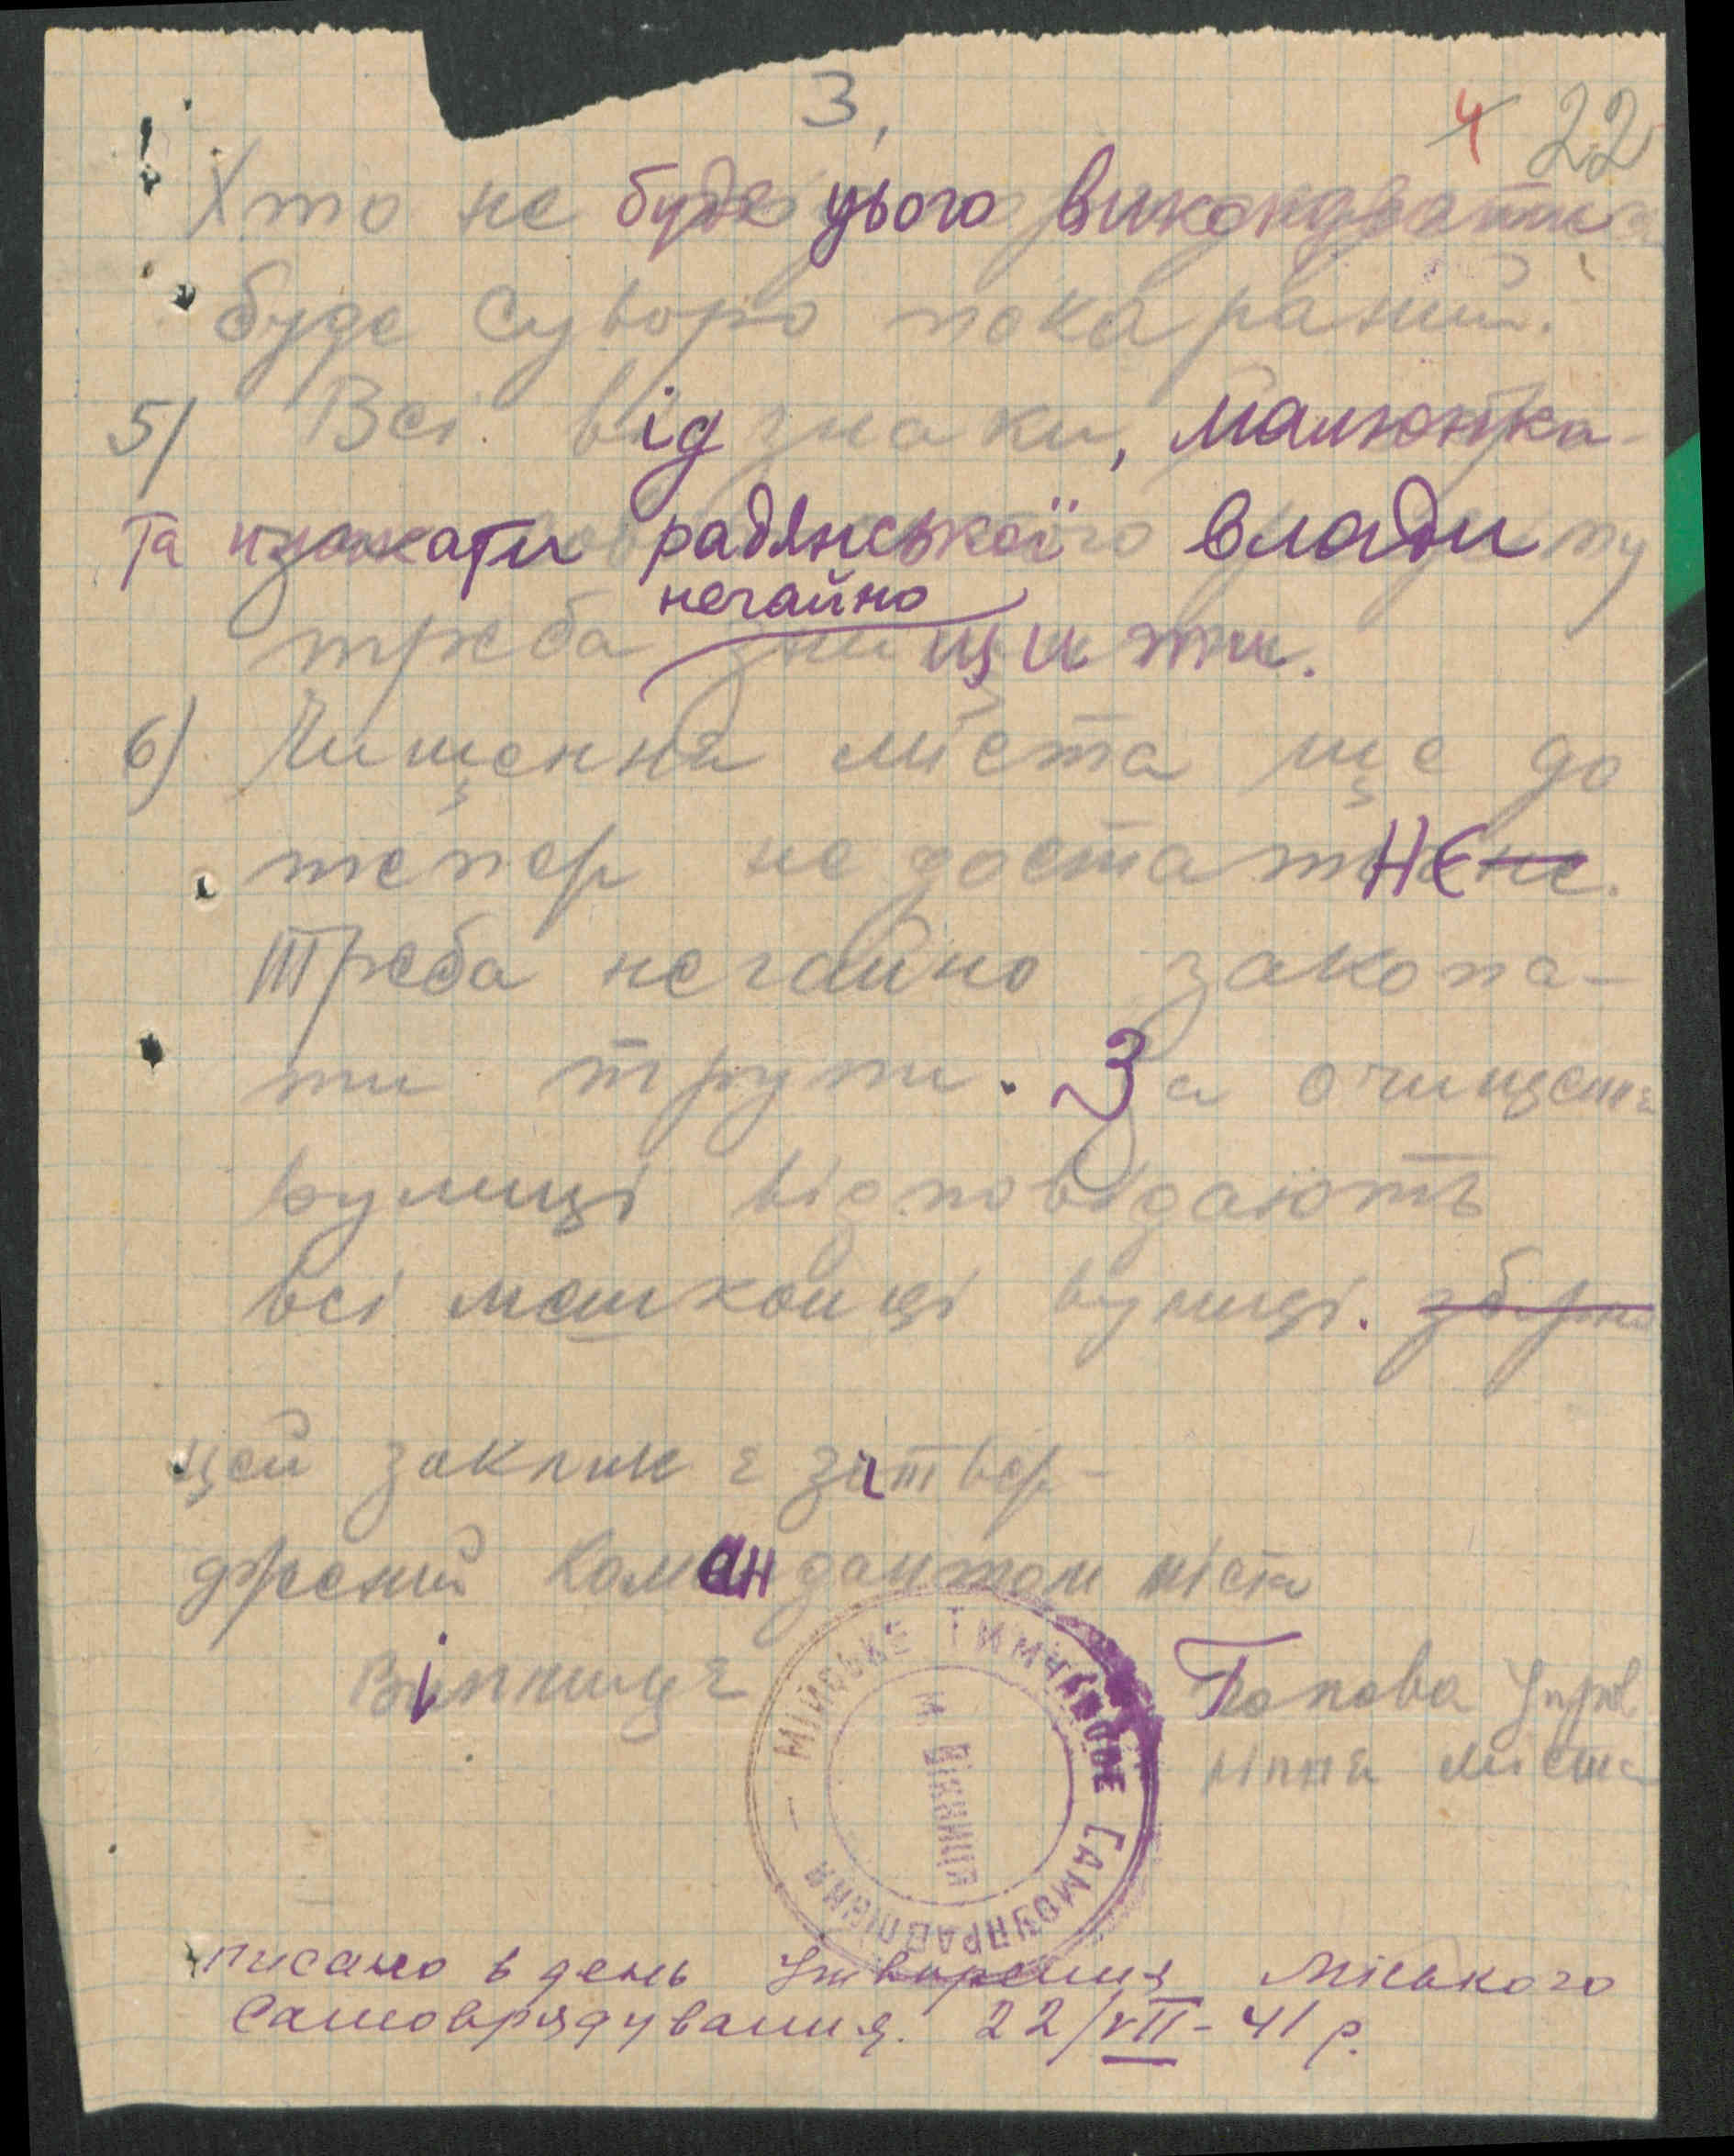 3,
4 22
Хто не буде цього виконувати
буде суворо покараний.
5) Всі відзнаки, малюнки
та плакати радянської влади
негайно
треба знищити.
6) Чищення міста ще до
тепер не достатнє.
Треба негайно закопа-
ти трупи. За очищення
вулиці відповідають
всі мешканці вулиці.
цей заклик є затвер-
джений командантом міста
Вінниця
Голова Управ
ління міста
МІСЬКЕ ТИМЧАСОВЕ САМОУПРАВЛІННЯ
м. Вінниця
писано в день Утворення Міського
Самоврядування. 22/VII-41 р.